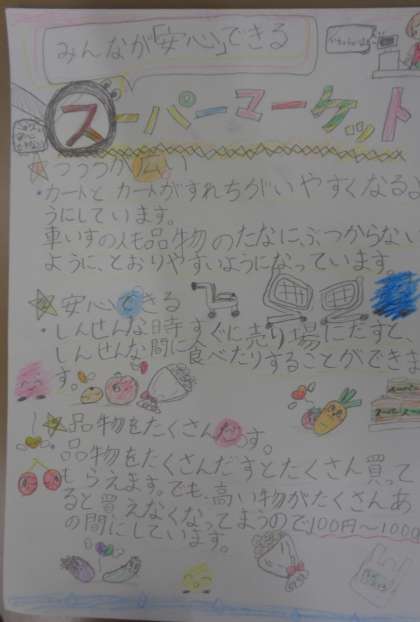 みんなが「安心」できる
スーパーマーケット
つうろが広い
・カートとカートがすれちがいやすくなるよ
うにしています。
車いすの人も品物のたなに、ぶつからない
ように、とおりやすいようになっています。
安心できる
・しんせんな時すぐに売り場にだすと、
しんせんな間に食べたりすることができま
す。
品物をたくさんだす。
品物をたくさんだすとたくさん買って
もらえます。でも、高い物がたくさんあ
ると買えなくなってしまうので100円〜1000
の間にしています。